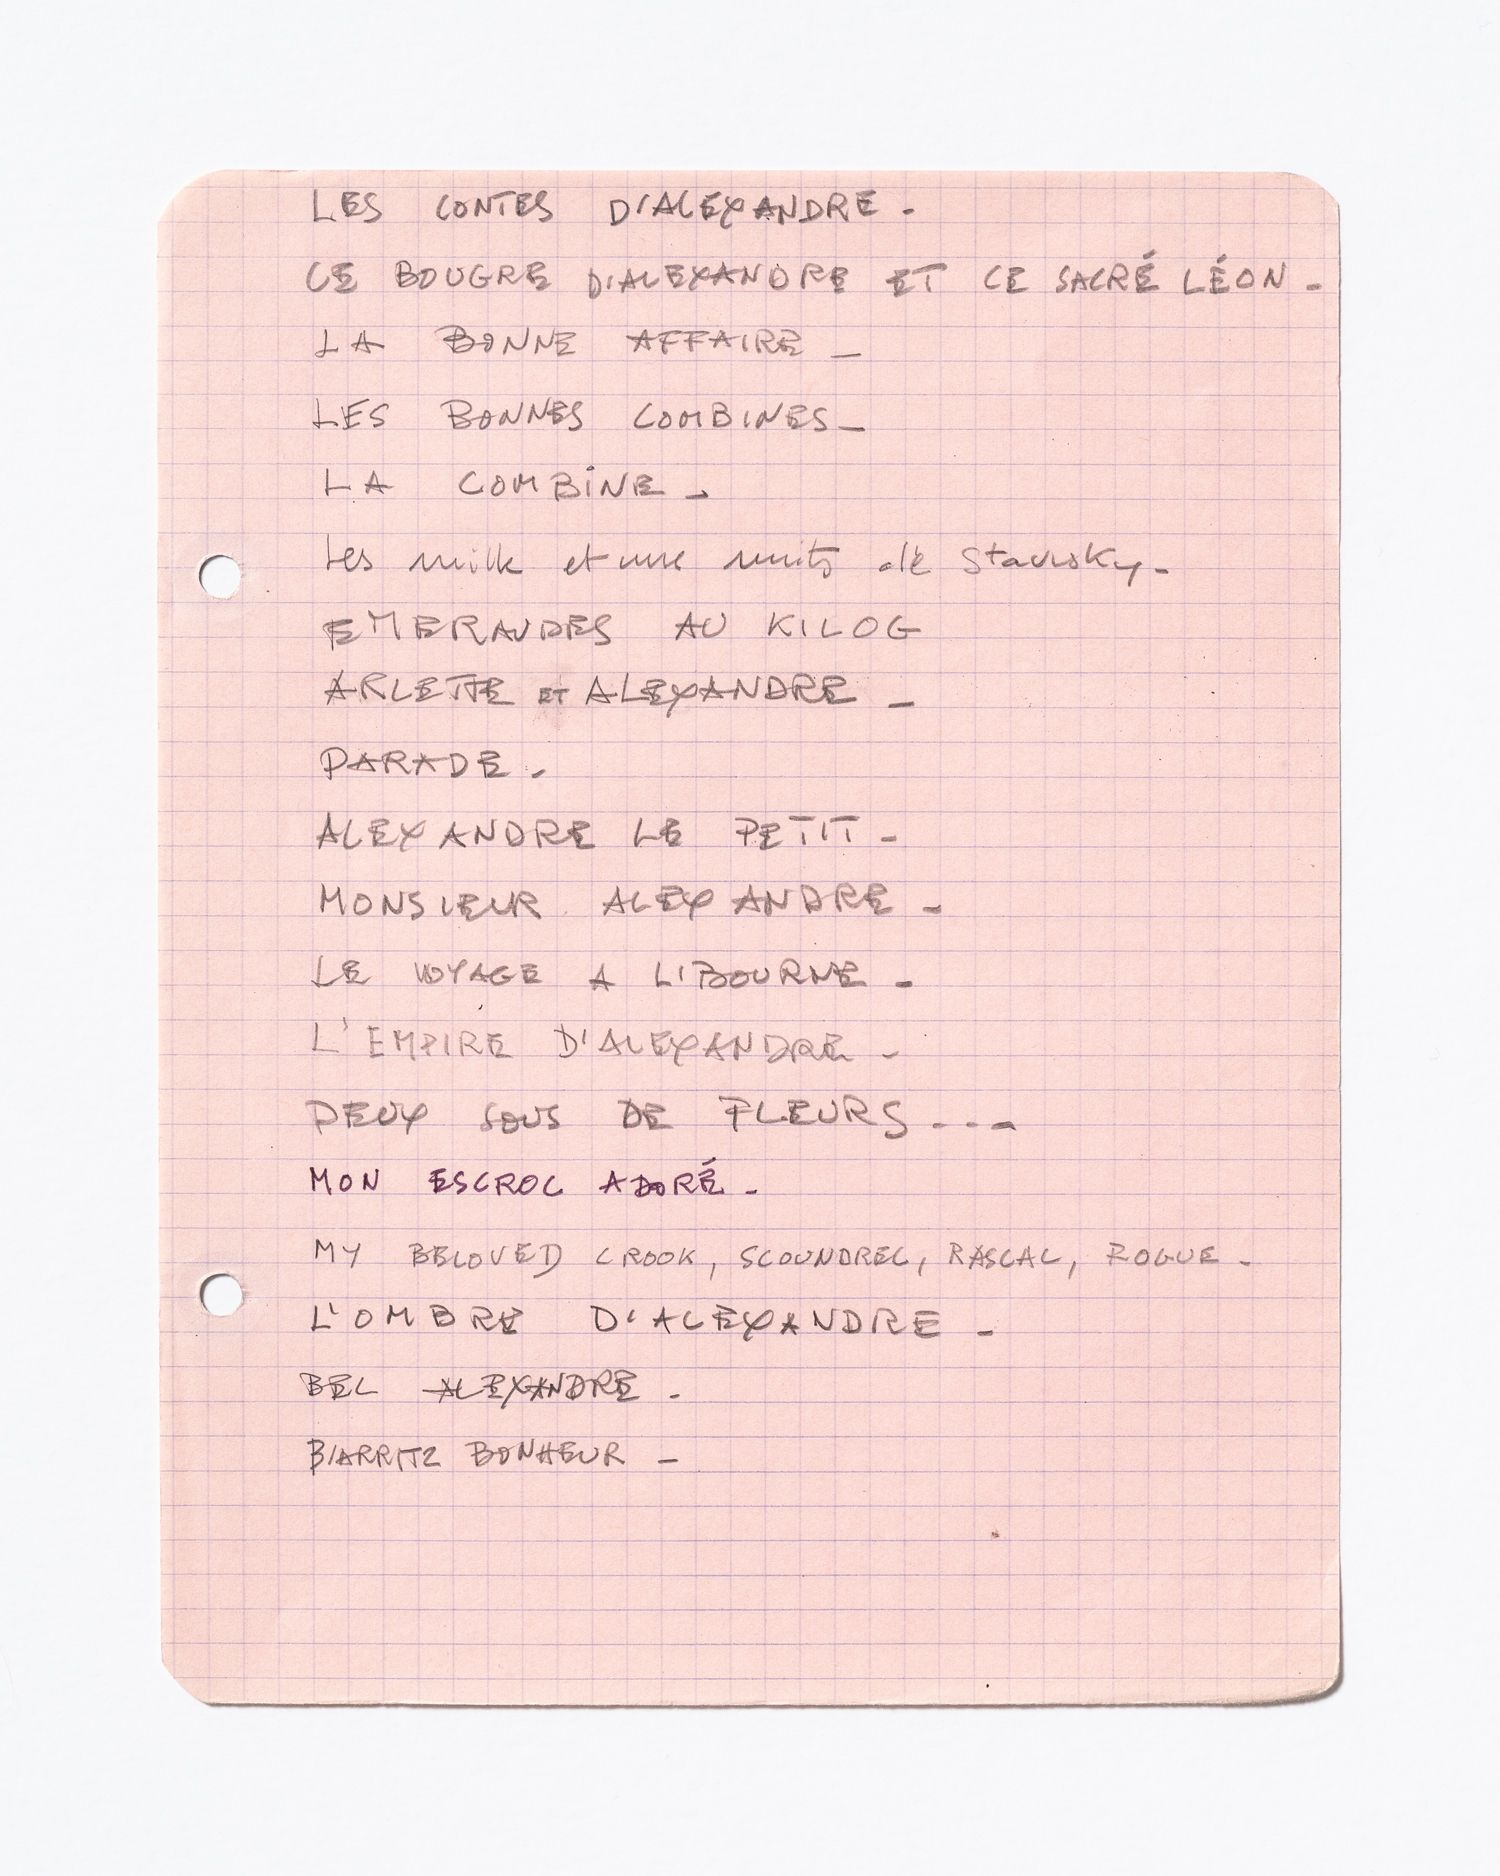 LES CONTES D'ALEXANDRE -
CE BOUGRE D'ALEXANDRE ET CE SACRÉ LÉON -
LA BONNE AFFAIRE -
LES BONNES COMBINES -
LA COMBINE -
Les mille et une nuits de Stavisky -
EMERAUDES AU KILOG
ARLETTE ET ALEXANDRE -
PARADE -
ALEXANDRE LE PETIT -
MONSIEUR ALEXANDRE -
LE VOYAGE A LIBOURNE -
L'EMPIRE D'ALEXANDRE -
DEUX SOUS DE FLEURS - - -
MON ESCROC ADORÉ -
MY BELOVED CROOK, SCOUNDREL, RASCAL, ROGUE -
L'OMBRE D'ALEXANDRE -
BEL ALEXANDRE -
BIARRITZ BONHEUR -